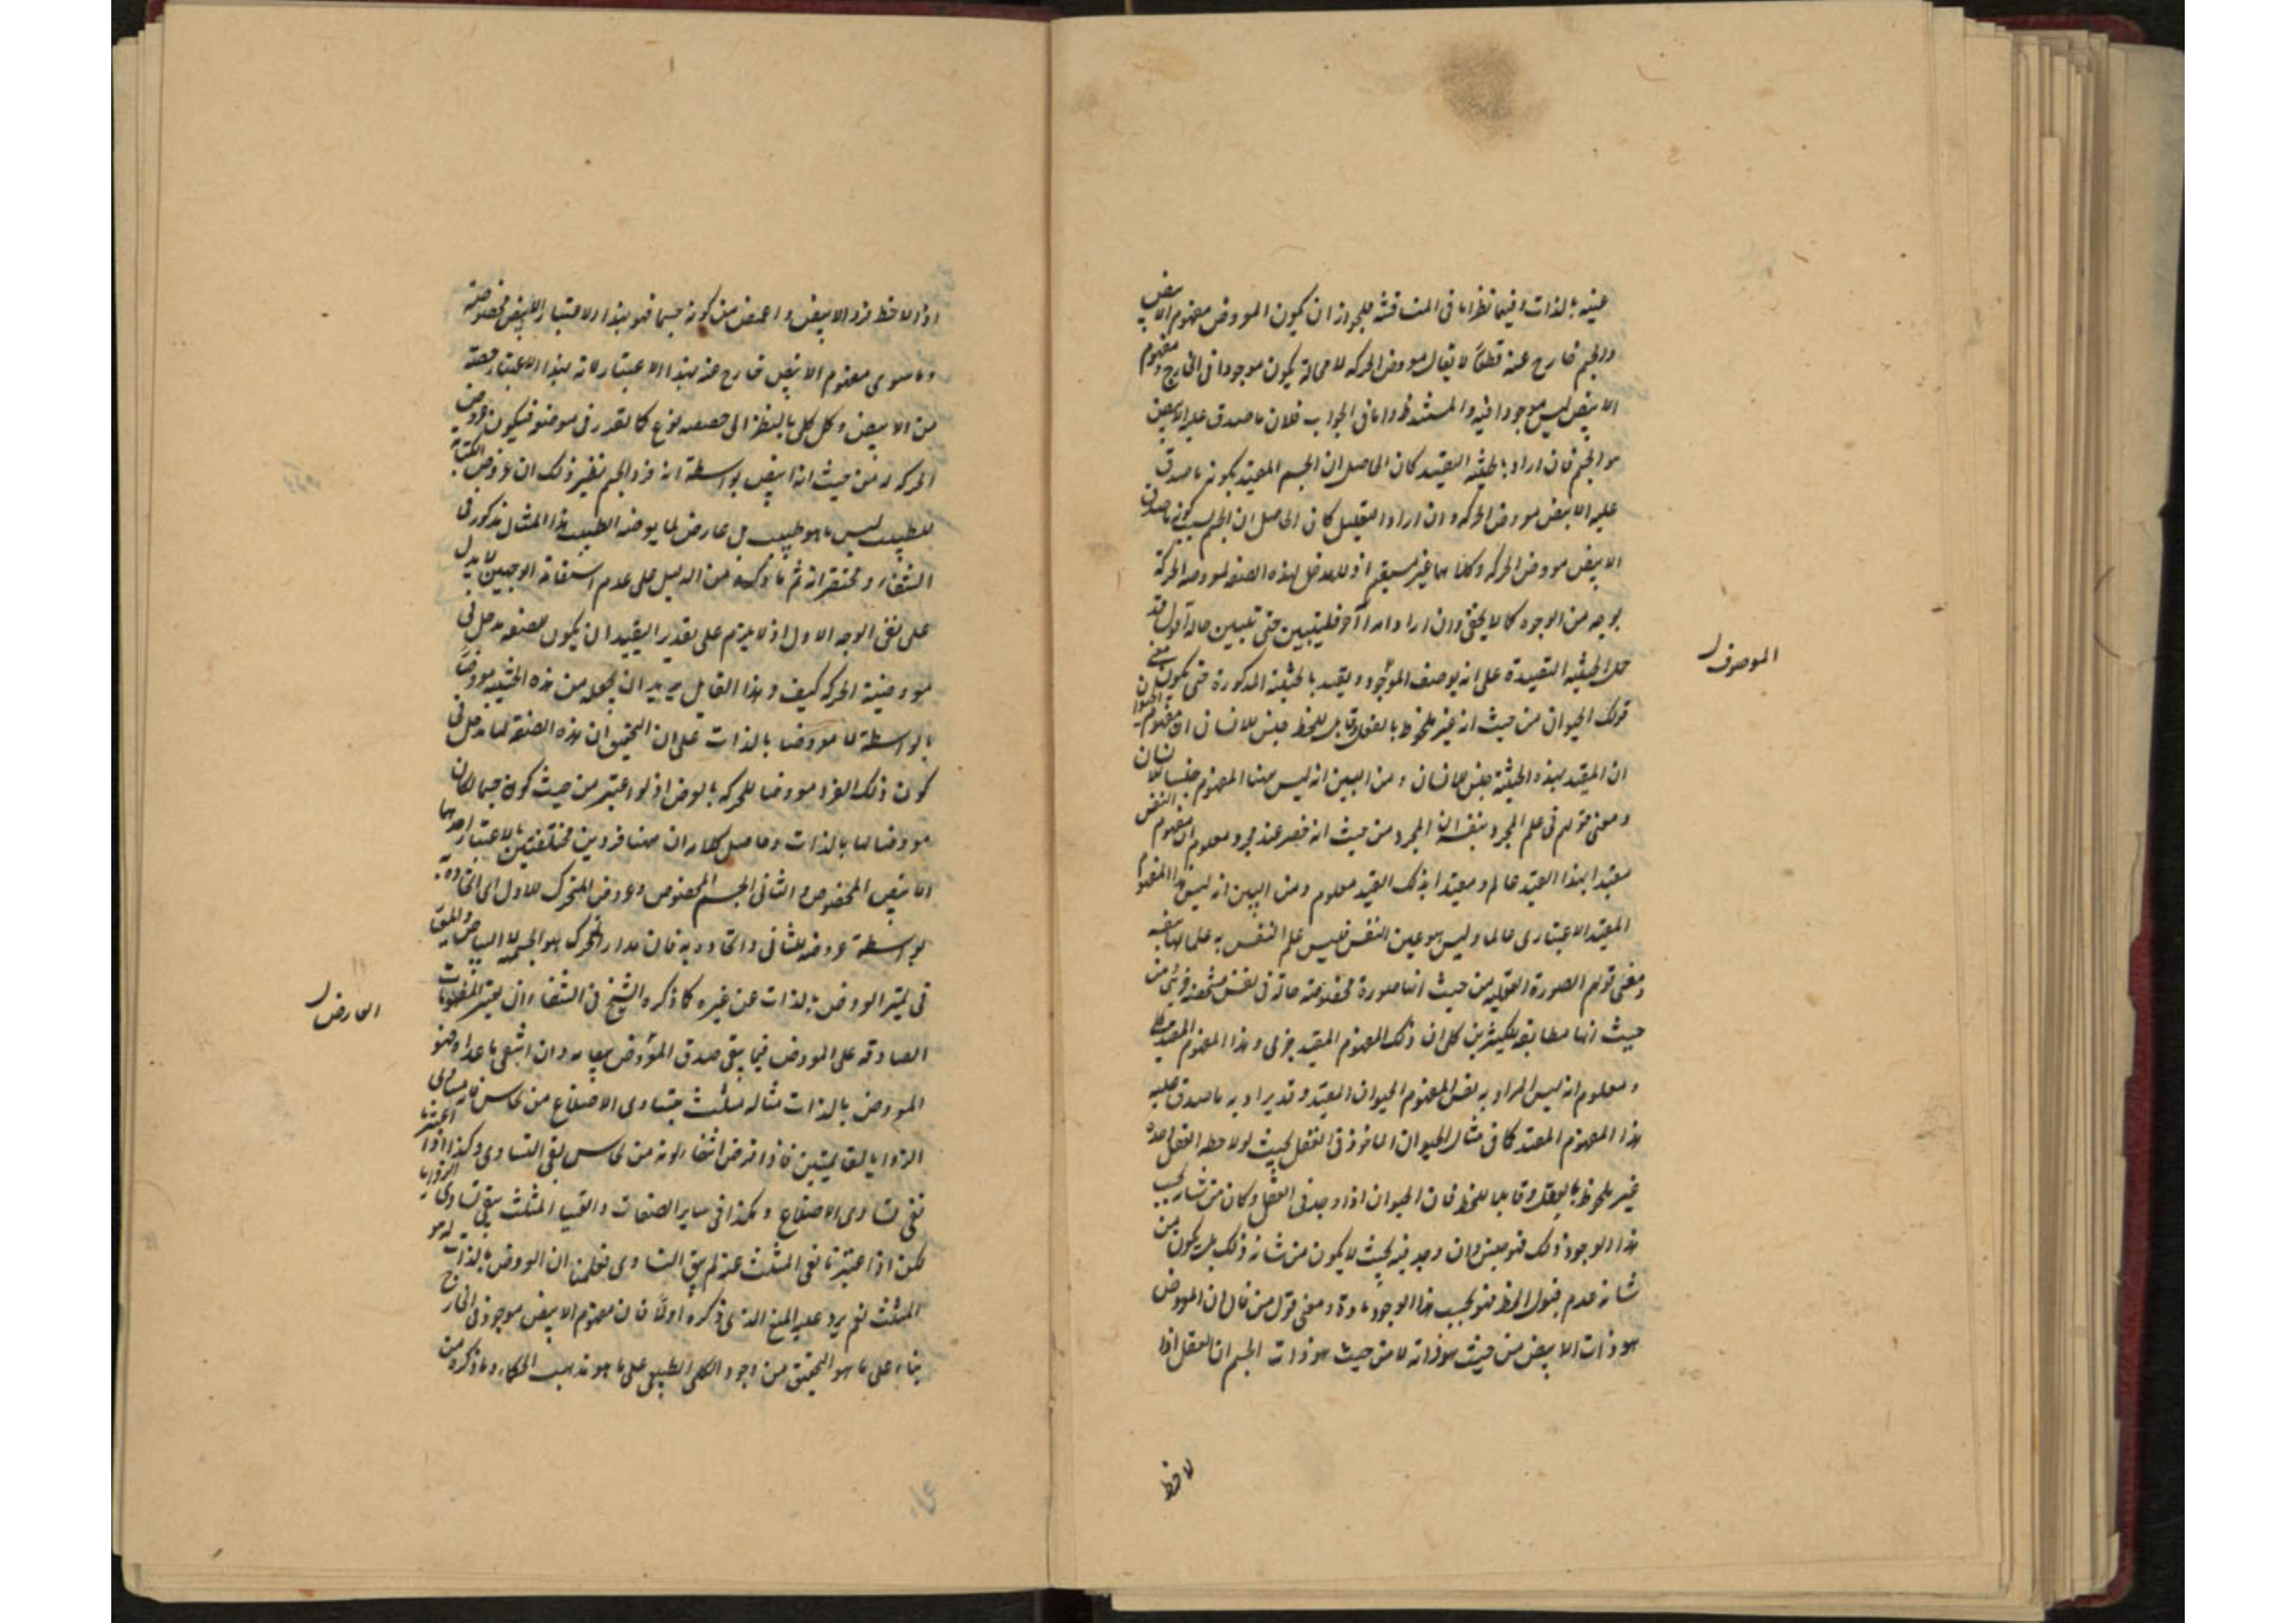 عينه بالذات وفيما نظر اما في المناقشة فلجواز ان يكون المعروض مفهوم الابيض
والجسم خارج عنه قطعا لا يقال معروض الحركة لا محالة يكون موجودا في الخارج ومفهوم
الابيض ليس موجودا فيه والمستند ظ واما في الجواب فلان ما صدق عليه الابيض
هو الجسم فان اراد بالحيثية التقييد كان الحاصل ان الجسم المقيد بكونه ما صدق
عليه الابيض معروض الحركة وان اراد التعليل كان الحاصل ان الجسم بسبب كونه ما صدق
الابيض معروض الحركة وكلاهما غير مستقيم اذ لا مدخل لهذه الصفة لمعروضه الحركة
بوجه من الوجوه كما لا يخفى وان اراد امرا آخر فليتبين حتى تبين حاله اقول قد
حمل الحيثية التقييدة على انه يوصف الموجود ويقيد بالحيثية المذكورة حتى يكون معنى
قولك الحيوان من حيث انه غير ملحوظ بالفعل وقابل للحظ جنس للانسان ان مفهوم الحيوان
ان المقيد بهذه الحيثية جنس للانسان ومن البين انه ليس هذا المفهوم جنسا للانسان
ومعنى قولهم في علم المجرد بنفسه ان المجرد من حيث انه حضر عند مجرد معلوم ان مفهوم النفس
مقيدا بهذا القيد عالم ومقيدا بذلك القيد معلوم ومن البين انه ليس هذا المفهوم
المقيد الاعتباري عالما وليس هو عين النفس فليس علم النفس به علما بنفسه
ومعنى قولهم الصورة العقلية من حيث انها صورة مخصوصة حالة في نفس مشخصة جزئي من
حيث انها مطابقة لكثيرين كلي ان ذلك المفهوم المقيد جزئي وهذا المفهوم المقيد كلي
ومعلوم انه ليس المراد به نفس المفهوم الحيوان المقيد وقد يراد به ما صدق عليه
هذا المفهوم المقيد كما في مثال الحيوان المأخوذ في العقل بحيث لو لاحظه العقل وحده
غير ملحوظ بالفعل وقابلا للحظ فان الحيوان اذا وجد في العقل وكان من شانه بحسب
هذا الوجود ذلك فهو جنس وان وجد فيه بحيث لا يكون من شانه ذلك بل يكون من
شانه عدم قبول الحظ فهو بحسب هذا الوجود مادة ومعنى قول من قال ان المعروض
هو ذات الابيض من حيث هو ذاته لا من حيث هو ذات الجسم ان العقل اذا
الموصوف
لاحظ
اذا لاحظ فرد الابيض واعرض عن كونه جسما فهو بهذا الاعتبار ابيض مخصوصة
وما سوى مفهوم الابيض خارج عنه بهذا الاعتبار لانه بهذا الاعتبار حصة
من الابيض وكل كلي بالنظر الى حصصه نوع كما تقرر في موضعه فيكون عروض
الحركة له من حيث انه ابيض بواسطة انه فرد الجسم نظير ذلك ان عروض الكتابة
للطبيب ليس بما هو طبيب بل عارض لما يعرضه الطبيب هذا المثال مذكور في
الشفاء ومختصراته ثم ما ذكره من الدليل على عدم استقامة الوجهين لا يدل
على نفي الوجه الاول اذ لا يلزم على تقدير التقييد ان يكون للصفة مدخل في
معروضية الحركة كيف وهذا القايل يريد ان يجعله من هذه الحيثية معروضا
بالواسطة لا معروضا بالذات على ان التحقيق ان هذه الصفة لها مدخل في
كون ذلك الفرد معروضا للحركة بالعرض اذ لو اعتبر من حيث كونه جسما لكان
معروضا لها بالذات وحاصل كلامه ان ههنا فردين مختلفين بالاعتبار احدهما
الابيض المخصوص والثاني الجسم المخصوص وعروض المتحرك للاول اي اتحاده به
بواسطة عروضه للثاني واتحاده به فان مدار التحرك هو الجسمية لا البياض والطريق
في تميز المعروض بالذات عن غيره كما ذكره الشيخ في الشفاء ان يعتبر المفهومات
الصادقة على المعروض فيما يبقى صدق المعروض ببقائه وان انتفى ما عداه فهو
المعروض بالذات مثاله مثلث متساوي الاضلاع من نحاس فان مساوي
الزوايا لقائمتين فاذا فرض انتفاء كونه من نحاس بقي التساوي وكذا اذا اعتبرنا
نفي تساوي الاضلاع وهكذا في ساير الصفات والقيد المثلث يبقى تساوي الزوايا
لكن اذا اعتبرنا نفي المثلث عنه لم يبق التساوي فعلمنا ان المعروض بالذات له هو
المثلث نعم يرد عليه المنع الذي ذكره اولا فان مفهوم الابيض موجود في الخارج
بناء على ما هو التحقيق من وجود الكلي الطبيعي على ما هو مذهب الحكماء وما ذكره من
العارض